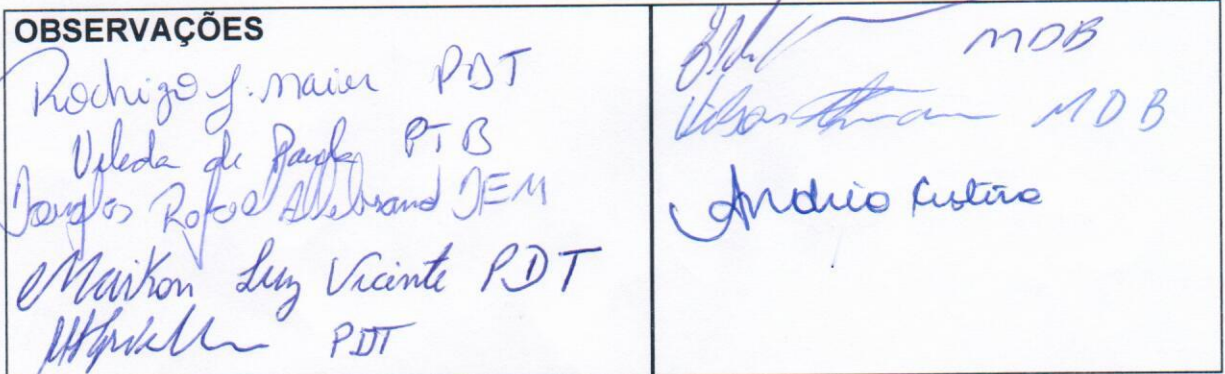 OBSERVAÇÕES
Rodrigo J. Maier PDT
Veleda de Paula PTB
Douglas Rafael DEM
Maikon Luz Vicente PDT
PDT
MDB
MDB
Andréia Cristina